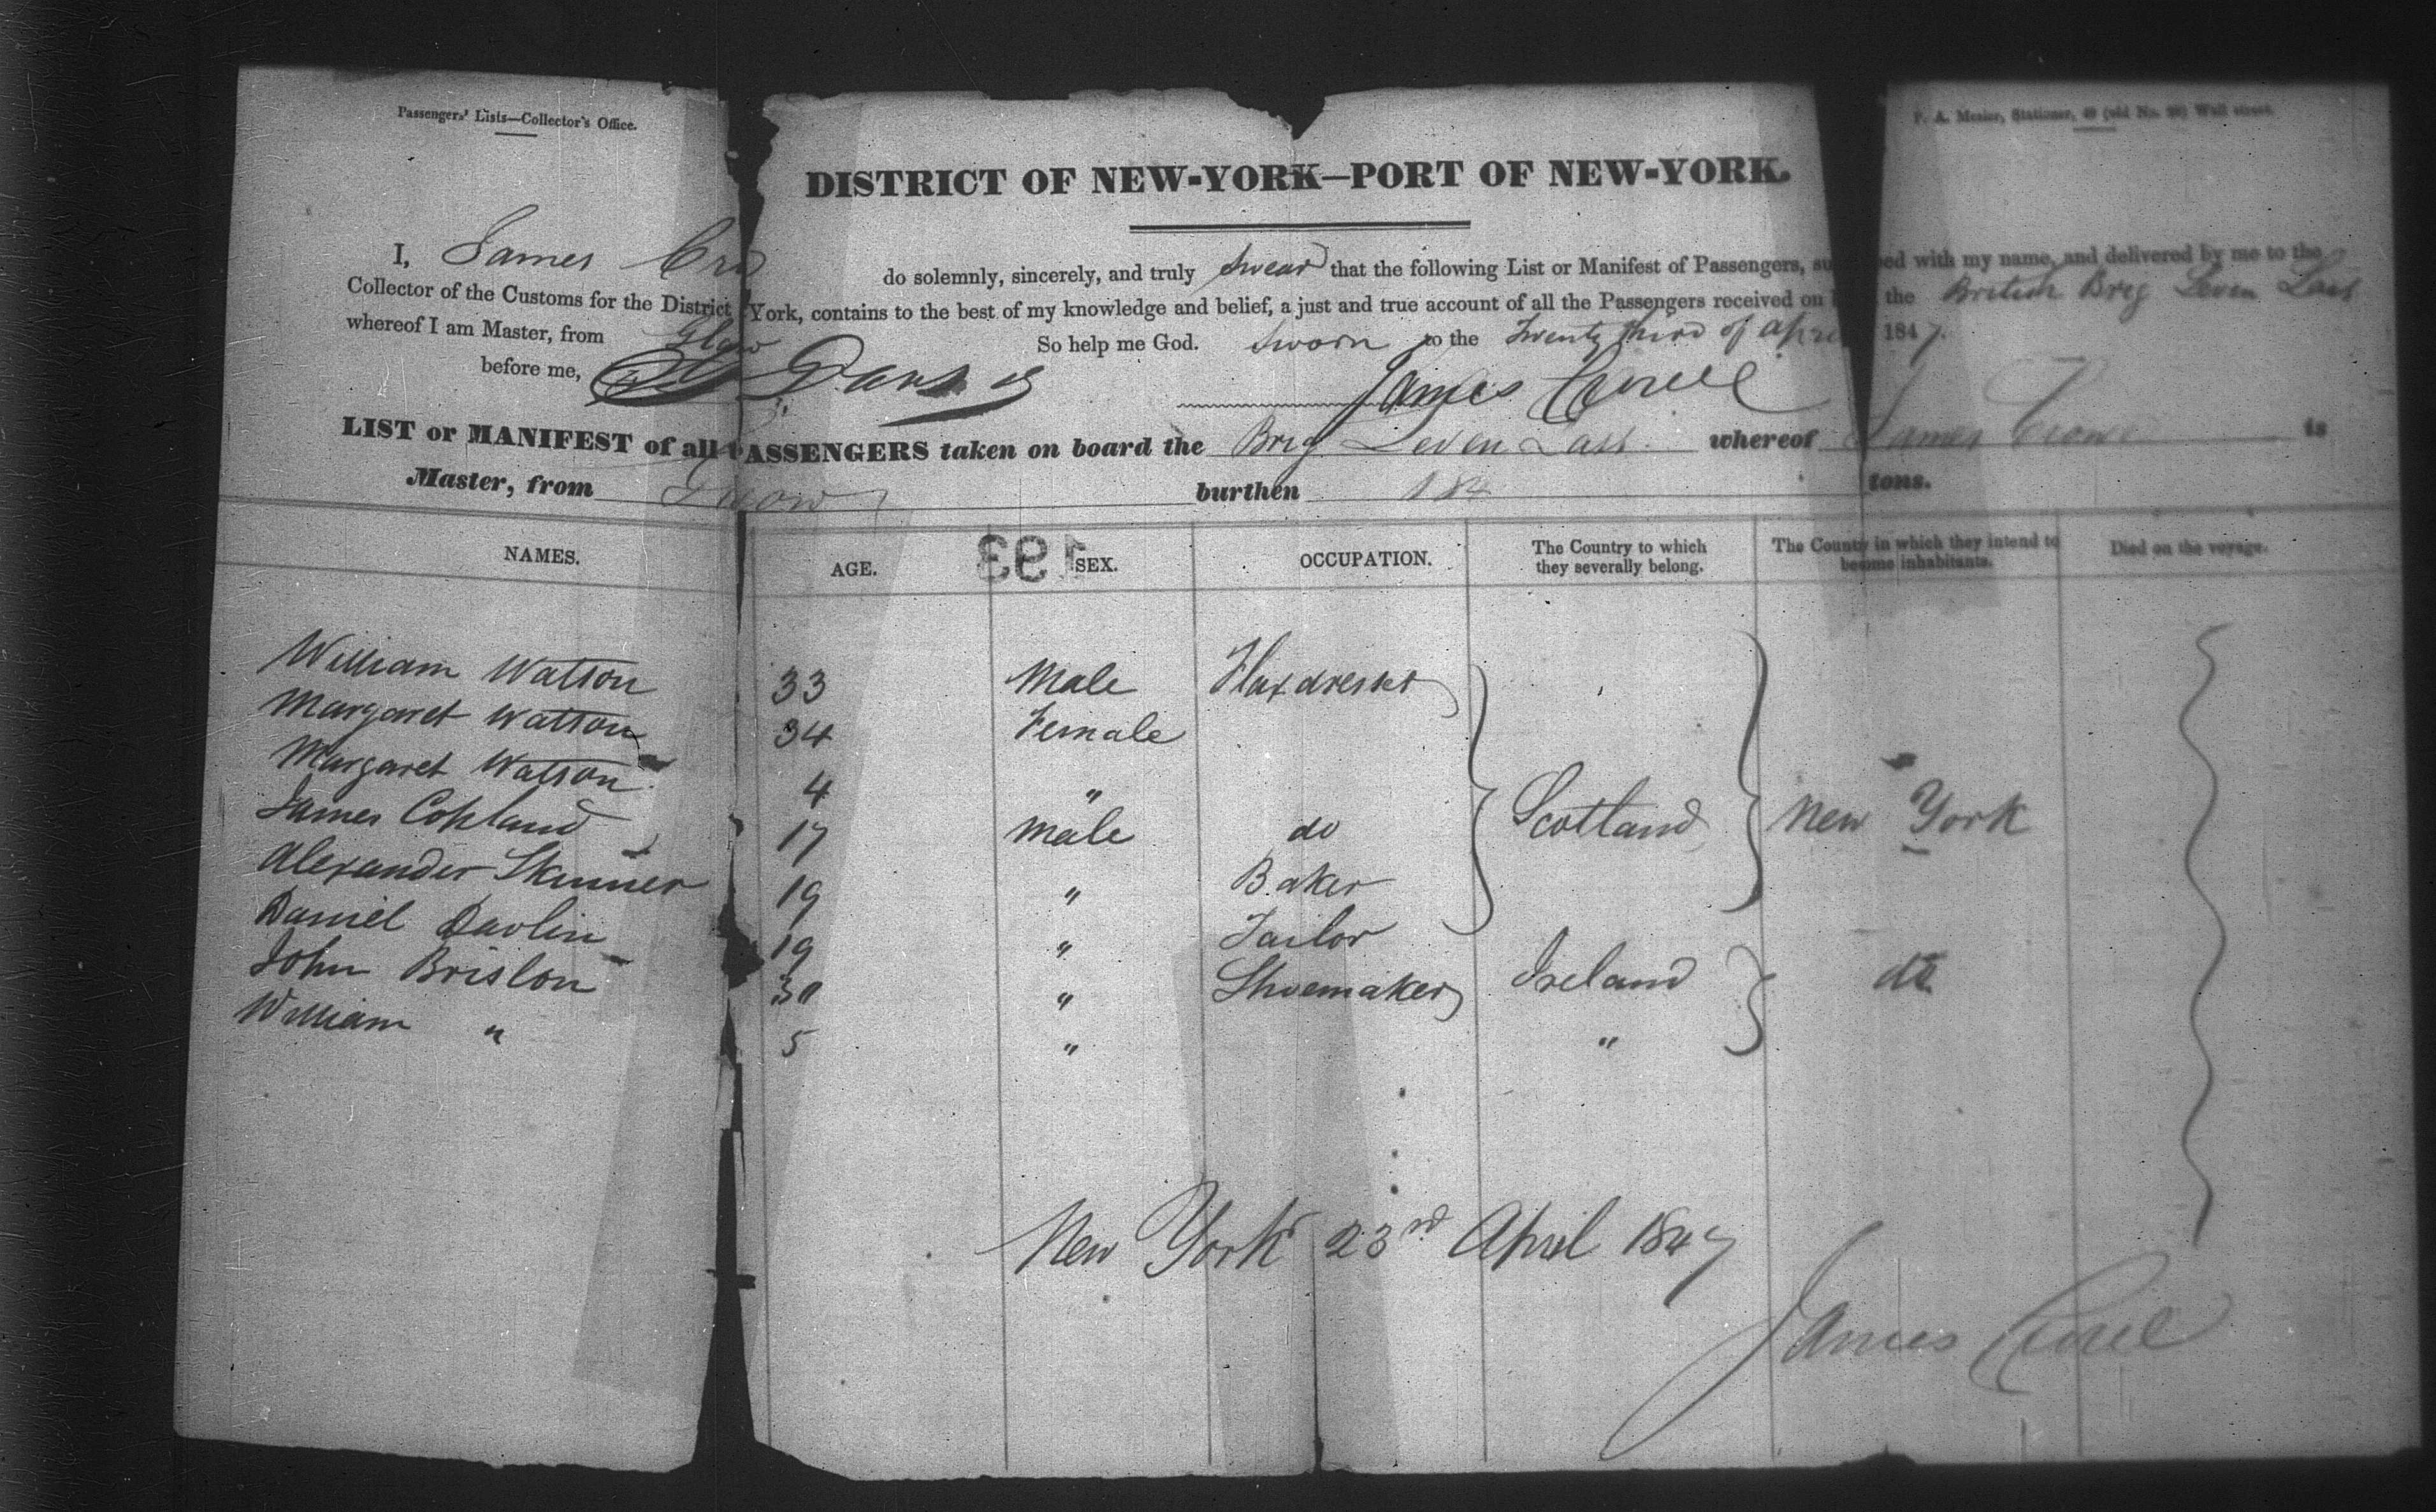 Passengers' Lists—Collector's Office.
P. A. Mesier, Stationer, 49 (old No. 28) Wall street.
DISTRICT OF NEW-YORK—PORT OF NEW-YORK.
I, James do solemnly, sincerely, and truly swear that the following List or Manifest of Passengers, with my name, and delivered by me to the
Collector of the Customs for the District York, contains to the best of my knowledge and belief, a just and true account of all the Passengers received on the British Brig Leven Lass
whereof I am Master, from So help me God. Sworn to the Twenty third of April 1847.
before me, James
LIST or MANIFEST of all PASSENGERS taken on board the Brig Leven Lass whereof James is
Master, from burthen 184 tons.
193
NAMES. AGE. SEX. OCCUPATION. The Country to which they severally belong. The County in which they intend to become inhabitants. Died on the voyage.
William Watson 33 Male Flaxdresser
Margaret Watson 34 Female
Margaret Watson 4 "
James Copland 17 Male do Scotland New York
Alexander Skinner 19 " Baker
Daniel Davlin 19 " Tailor
John Brislon 30 " Shoemaker Ireland do
William " 5 " "
New York 23rd April 1847
James